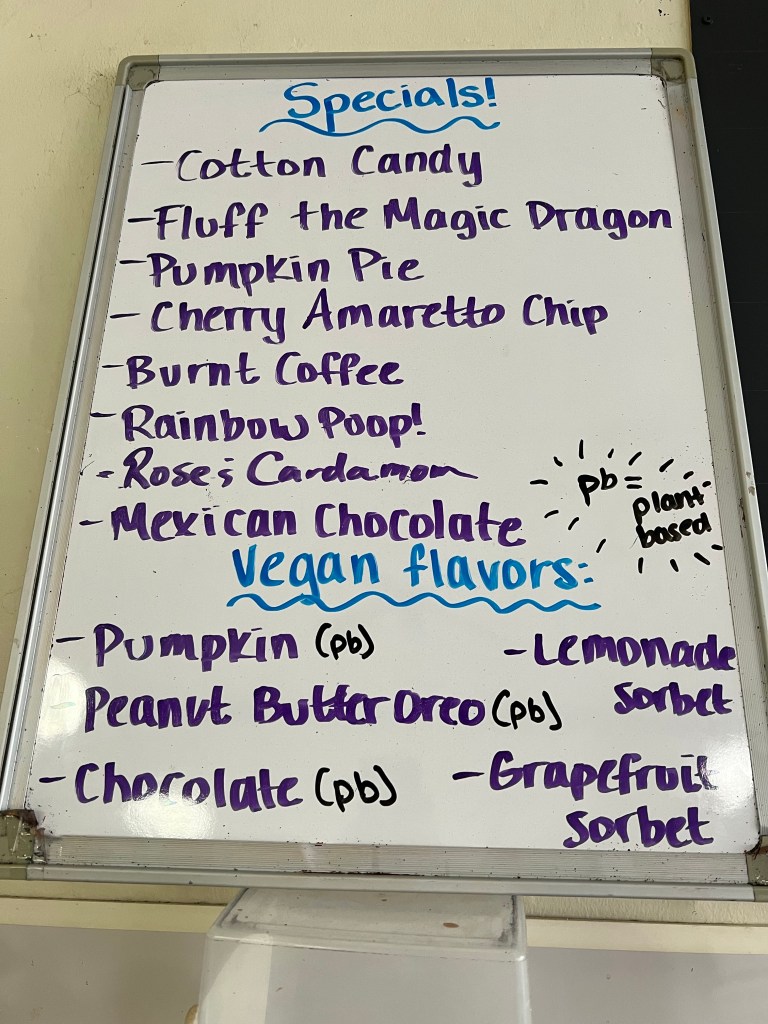 Specials!
- Cotton Candy
- Fluff the Magic Dragon
- Pumpkin Pie
- Cherry Amaretto Chip
- Burnt Coffee
- Rainbow Poop!
- Rose & Cardamom
- Mexican Chocolate
pb =
plant
based
Vegan flavors:
- Pumpkin (pb)
- Peanut Butter Oreo (pb)
- Chocolate (pb)
- Lemonade
Sorbet
- Grapefruit
Sorbet